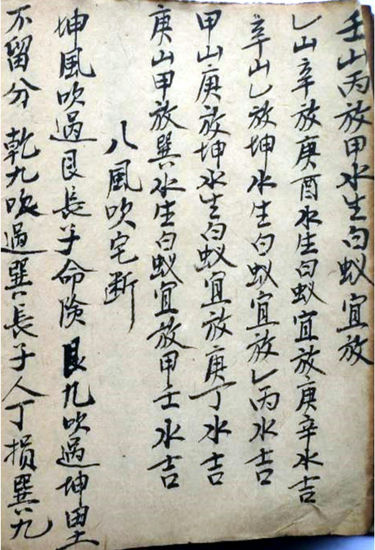 壬山丙放甲水生白蚁宜放
乙山辛放庚酉水生白蚁宜放庚辛水吉
辛山乙放坤水生白蚁宜放乙丙水吉
甲山庚放坤水生白蚁宜放庚丁水吉
庚山甲放巽水生白蚁宜放甲壬水吉
八風吹宅断
坤風吹过艮長子命険艮九吹过坤里
不留分乾九吹過巽長子人丁損巽九